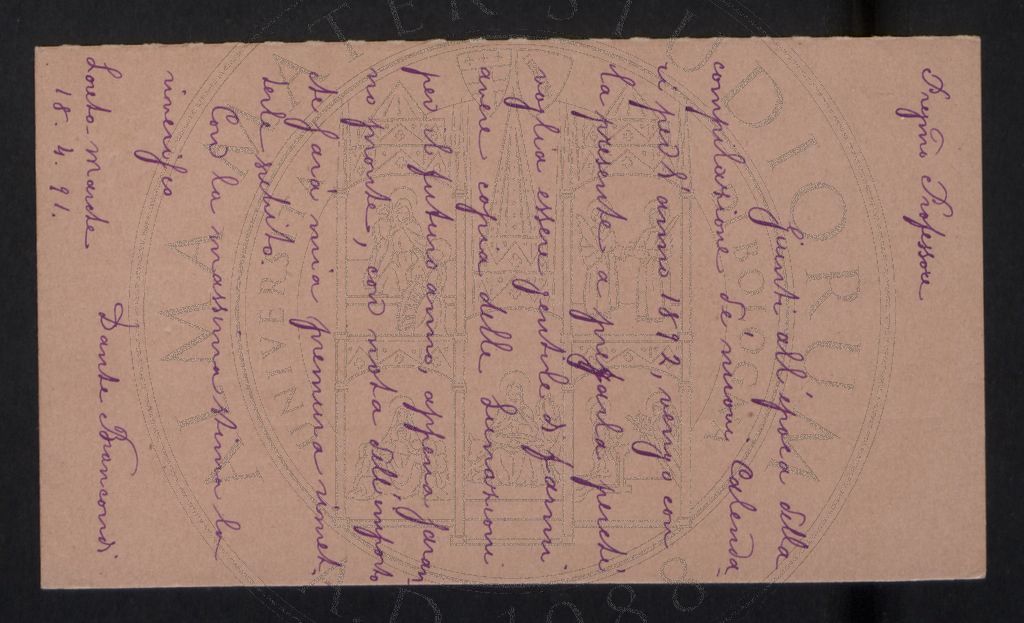 Pregmo Professore
Giunti all'época della
compilazione de' nuovi Calenda-
ri pell'anno 1892, vengo con
la presente a pregarla perchè,
voglia essere gentile di farmi
avere copia delle Lunazioni
per il futuro anno, appena saran-
no pronte, con nota dell'importo
che sarà mia premura rimet-
terle subito.
Con la massima stima la
riverisco
Loreto-Marche
18. 4. 91.
Dante Brancondi
ALMA MATER STUDIORUM
UNIVERSITÀ DI BOLOGNA
A.D. 1088